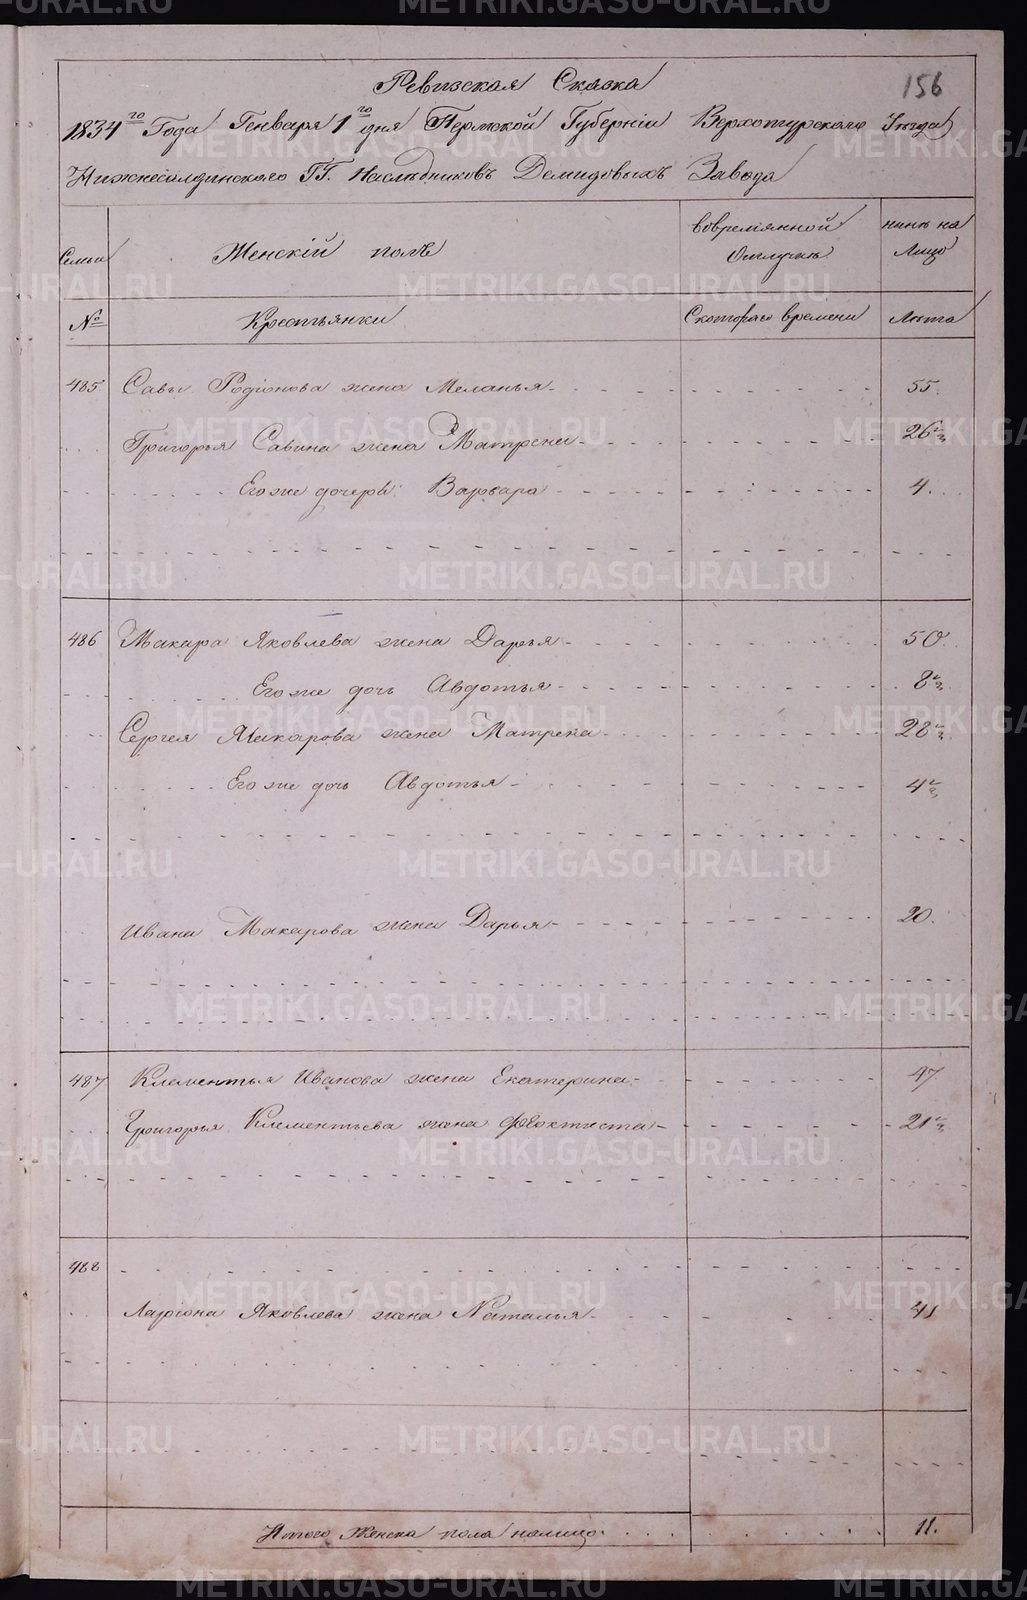 156
Ревизская Сказка
1834го Года Генваря 1го дня Пермской Губернiи Верхотурского Уѣзда
Нижнесалдинского ГГ. Наслѣдниковъ Демидовыхъ Завода
Семьи Женскiй полъ вовремянной Отлучкѣ нынѣ на Лицо
№ Крестьянки Скотораго времени Лѣта
485. Савы Родiонова жена Меланья 55.
Григорья Савина жена Матрена 26½
Его же дочерь Варвара 4.
486 Макара Яковлева жена Дарья 50.
Его же дочь Авдотья 8½
Сергея Макарова жена Матрена 28½
Его же дочь Авдотья 4½
Ивана Макарова жена Дарья 20.
487 Клементья Иванова жена Екатерина 47
Григорья Клементьева жена Феоктиста 21½
488
Ларiона Яковлева жена Наталья 41
Итого Женска пола налицо 11.
METRIKI.GASO-URAL.RU